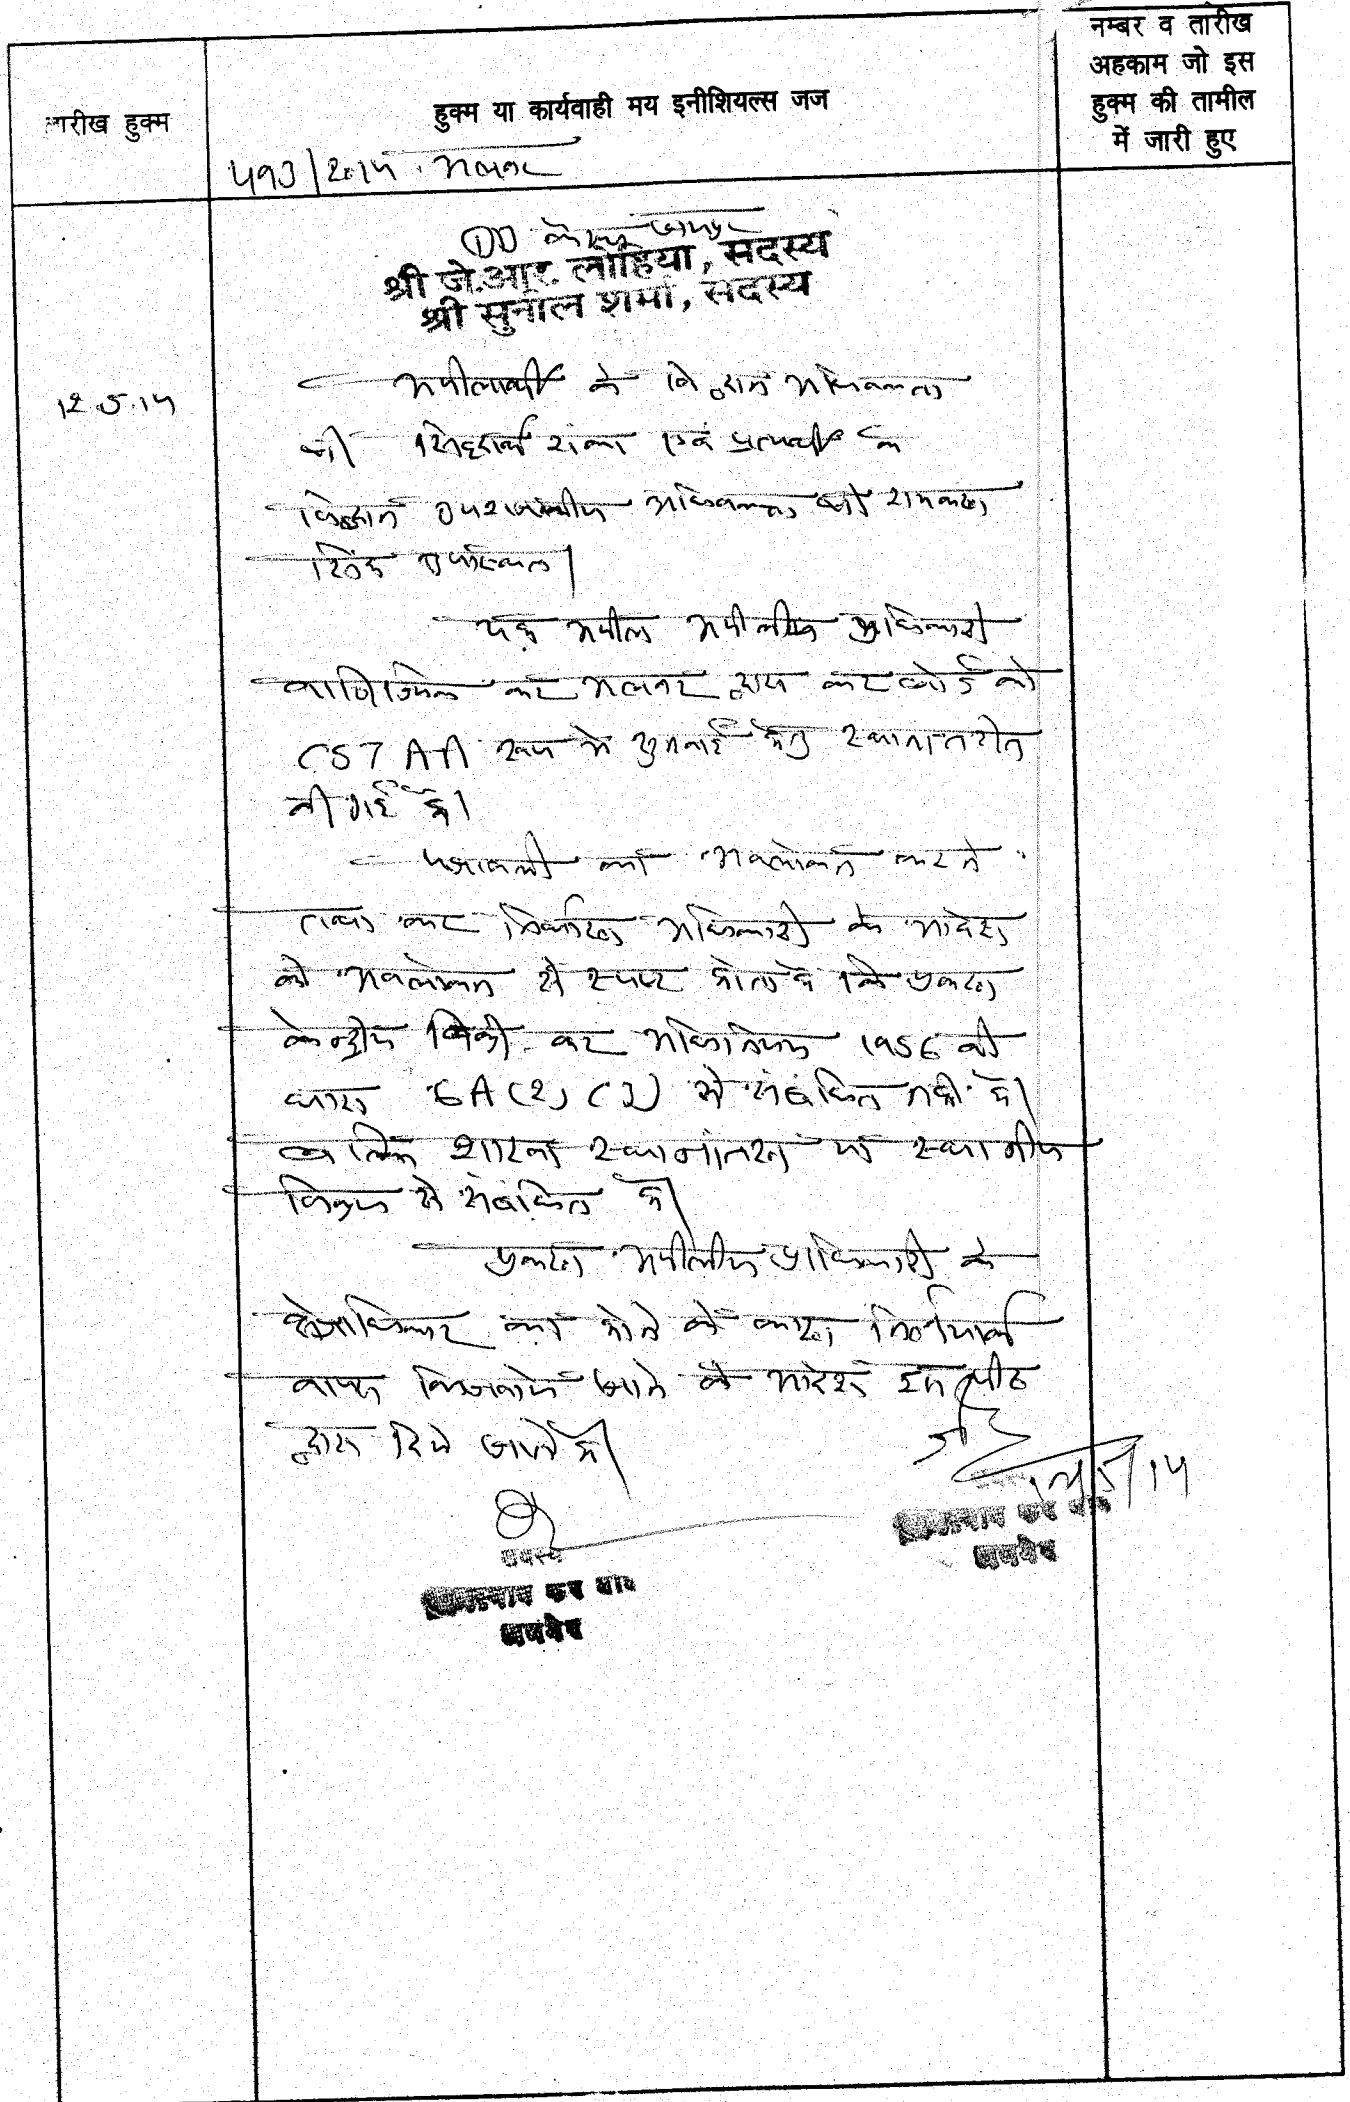 नम्बर व तारीख
अहकाम जो इस
हुक्म की तामील
में जारी हुए
तारीख हुक्म
हुक्म या कार्यवाही मय इनीशियल्स जज
593/2015. अलवर
श्री जे.आर. लोहिया, सदस्य
श्री सुनील शर्मा, सदस्य
12.5.15
अपीलार्थी के विद्वान अभिभाषक
श्री सिद्धार्थ रांका एवं प्रत्यर्थी के
विद्वान उपराजकीय अभिभाषक श्री रामकरण
सिंह उपस्थित।
यह अपील अपीलीय प्राधिकारी
वाणिज्यिक कर अलवर द्वारा कर बोर्ड को
CST AA रूप में सुनवाई हेतु स्थानान्तरित
की गई है।
पत्रावली का अवलोकन करने
तथा कर निर्धारण अधिकारी के आदेश
के अवलोकन से स्पष्ट होता है कि प्रकरण
केन्द्रीय बिक्री कर अधिनियम 1956 की
धारा 6A (2) (3) से संबंधित नहीं है।
बल्कि शाखा स्थानांतरण या स्थानीय
विक्रय से संबंधित है।
प्रकरण अपीलीय प्राधिकारी के
क्षेत्राधिकार का होने के कारण निर्णयार्थ
वापस भिजवाये जाने के आदेश इस पीठ
द्वारा दिये जाते है।
सदस्य
कर बोर्ड
अजमेर
कर बोर्ड
अजमेर